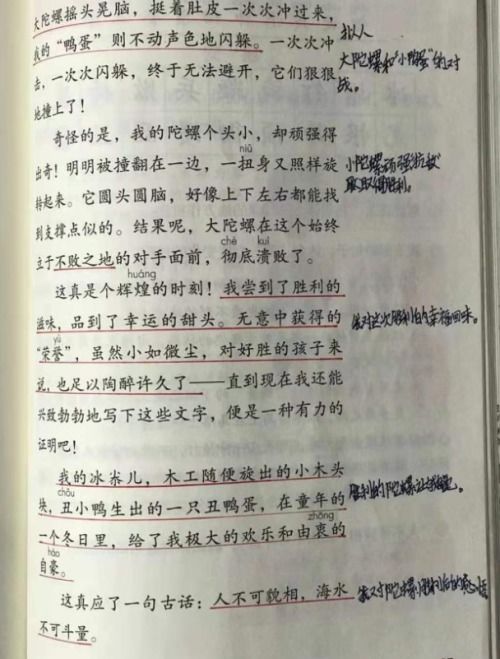 大陀螺摇头晃脑，挺着肚皮一次次冲过来，
我的“鸭蛋”则不动声色地闪躲。一次次冲
拟人
击，一次次闪躲，终于无法避开，它们狠狠
大陀螺和“小鸭蛋”的对
战。
地撞上了！
奇怪的是，我的陀螺个头小，却顽强得
niǔ
出奇！明明被撞翻在一边，一扭身又照样旋
小陀螺顽强抗敌
转起来。它圆头圆脑，好像上下左右都能找
取得胜利。
到支撑点似的。结果呢，大陀螺在这个始终
chè kuì
立于不败之地的对手面前，彻底溃败了。
huáng
这真是个辉煌的时刻！我尝到了胜利的
滋味，品到了幸运的甜头。无意中获得的
对这次胜利的幸福回味。
yù
“荣誉”，虽然小如微尘，对好胜的孩子来
说，也足以陶醉许久了——直到现在我还能
兴致勃勃地写下这些文字，便是一种有力的
证明吧！
我的冰尜儿，木工随便旋出的小木头
胜利的陀螺让我
chǒu
块，丑小鸭生出的一只丑鸭蛋，在童年的
zhōng
一个冬日里，给了我极大的欢乐和由衷的
háo
自豪。
这真应了一句古话：人不可貌相，海水
对陀螺胜利后的感悟
不可斗量。